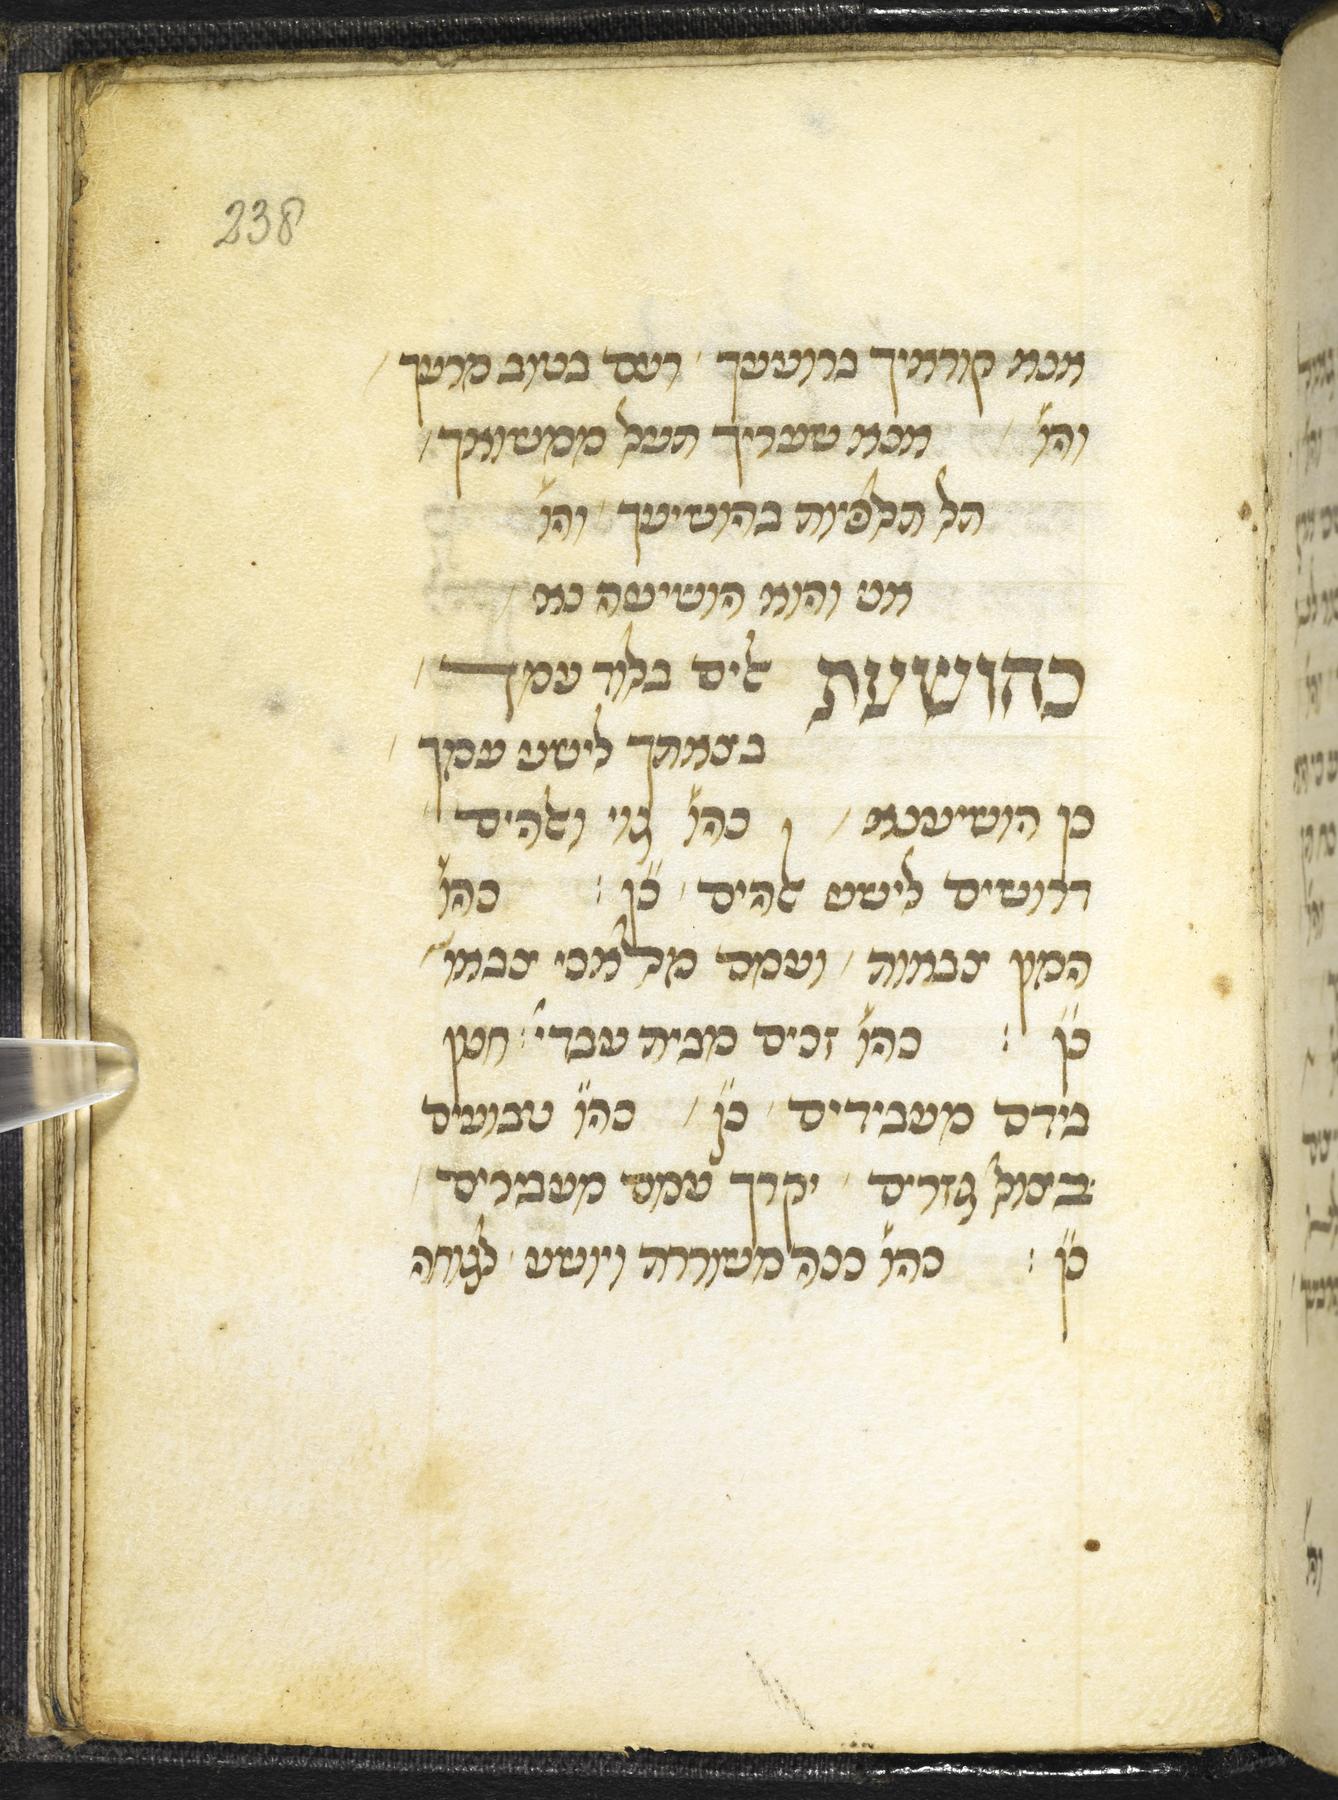 אנא קוראיך ברועעך / רעם בטוב מרעך /
והו' / אנא שעריך תעל ממשואך /
תל תלפיות בהושיעך / והו'
אני והוא הושיעה נא /
כהושעת אלים בלוד עמך /
בצאתך לישע עמך /
כן הושיענא / כהו' גוי ואלהים /
דרושים לישע אלהים / כן : כהו'
המון צבאות / ועמם מלאכי צבאו' /
כן : כהו' זכים מבית עבדי' : חנון
בידם מעבידים / כן / כהו' טבועים
בצול גזרים / יקרך עמם מעבירים /
כן : כהו' כנה משוררת ויושע / לגוחה
238